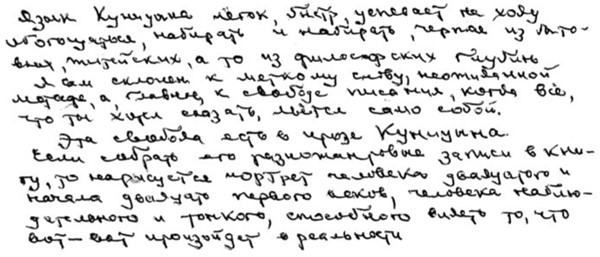 Язык Куницына меток, быстр, успевает на ходу
обогощаться, набирать и набирать, черпая из быто-
вых, житейских, а то из философских глубин
Я сам склонен к меткому слову, неожиданной
метафоре, а, главное, к свободе писания, когда всё,
что ты хотел сказать, льётся само собой.
Эта свобода есть в прозе Куницына.
Если собрать его разножанровые записи в кни-
гу, то нарисуется портрет человека двадцатого и
начала двадцать первого веков, человека наблю-
дательного и тонкого, способного видеть то, что
вот-вот произойдёт в реальности